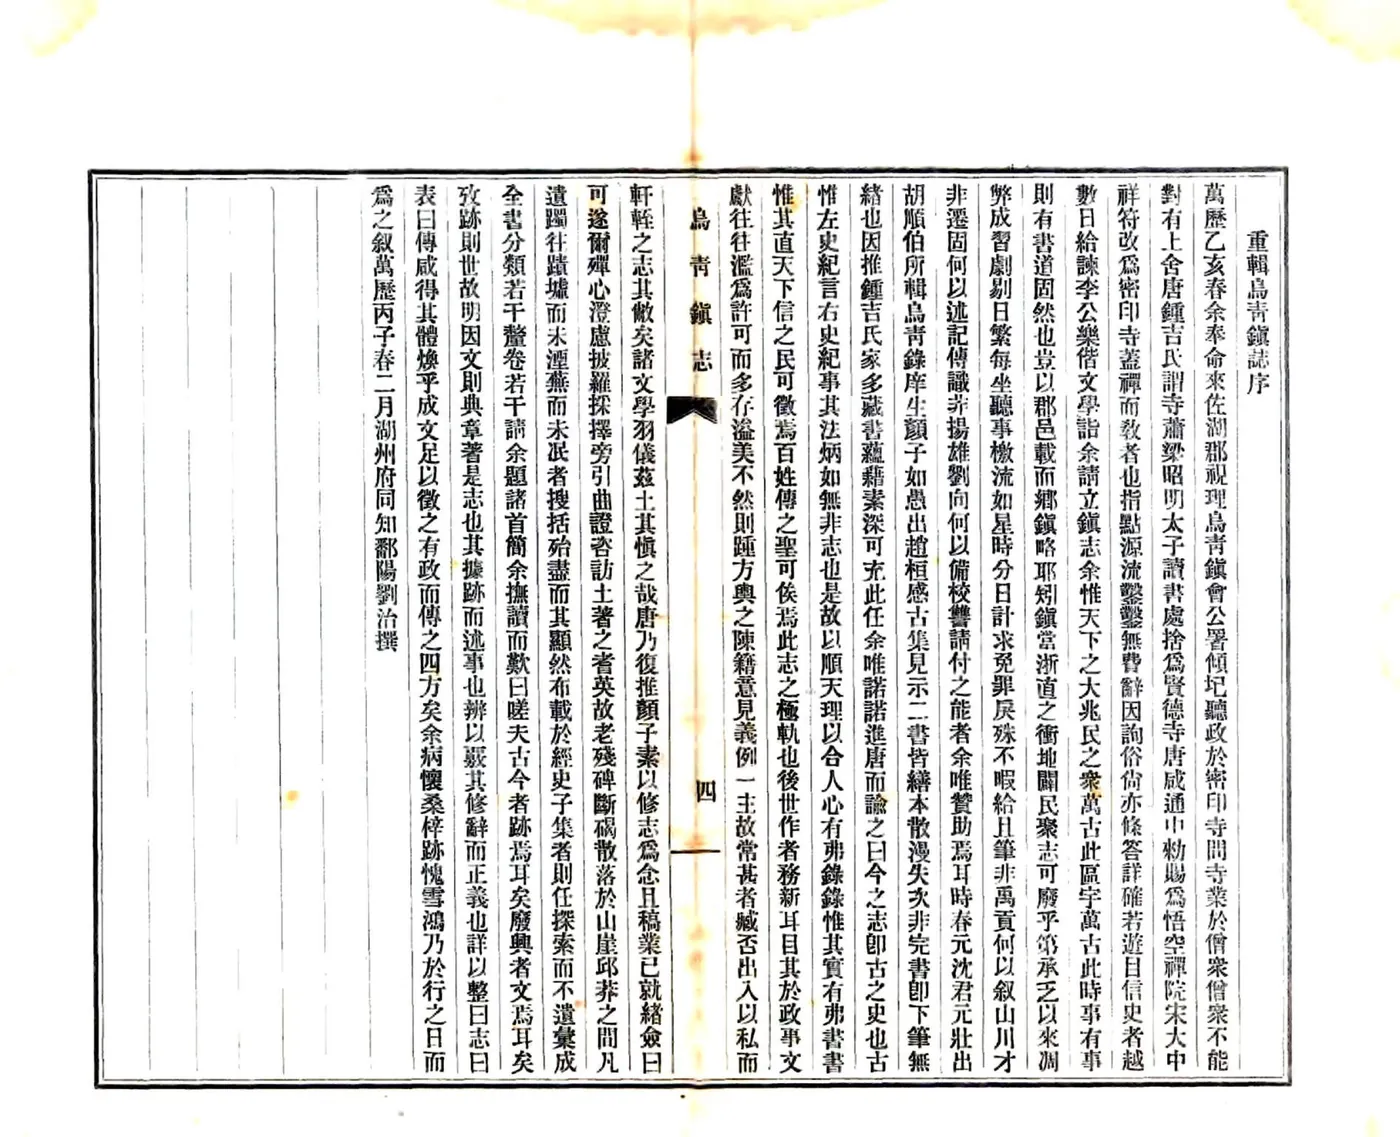 重輯烏青鎭誌序
萬歷乙亥春余奉命來佐湖郡視理烏青鎭會公署傾圮聽政於密印寺問寺業於僧衆僧衆不能
對有上舍唐鍾吉氏謂寺蕭梁昭明太子讀書處捨爲賢德寺唐咸通中勑賜爲悟空禪院宋大中
祥符改爲密印寺蓋禪而敎者也指點源流鑿鑿無費辭因詢俗尙亦條答詳確若遊目信史者越
數日給諫李公樂偕文學詣余請立鎭志余惟天下之大兆民之衆萬古此區宇萬古此時事有事
則有書道固然也豈以郡邑載而鄕鎭略耶矧鎭當浙直之衝地闢民聚志可廢乎第承乏以來凋
弊成習劇剔日繁每坐聽事檄流如星時分日計求免罪戾殊不暇給且筆非禹貢何以叙山川才
非遷固何以述記傳識非揚雄劉向何以備校讐請付之能者余唯贊助焉耳時春元沈君元壯出
胡順伯所輯烏青錄庠生顏子如愚出趙桓感古集見示二書皆繕本散漫失次非完書卽下筆無
緒也因推鍾吉氏家多藏書蘊藉素深可充此任余唯諾諾進唐而諭之曰今之志卽古之史也古
惟左史紀言右史紀事其法炳如無非志也是故以順天理以合人心有弗錄錄惟其實有弗書書
惟其直天下信之民可徵焉百姓傳之聖可俟焉此志之極軌也後世作者務新耳目其於政事文
獻往往濫爲許可而多存溢美不然則踵方輿之陳籍意見義例一主故常甚者臧否出入以私而
烏青鎭志
四
軒輊之志其敝矣諸文學羽儀茲土其愼之哉唐乃復推顏子素以修志爲念且稿業已就緒僉曰
可遂爾殫心澄慮披羅採擇旁引曲證咨訪土著之耆英故老殘碑斷碣散落於山崖邱莽之間凡
遺躅往蹟墟而未湮蕪而未泯者搜括殆盡而其顯然布載於經史子集者則任探索而不遺彙成
全書分類若干釐卷若干請余題諸首簡余撫讀而歎曰嗟夫古今者跡焉耳矣廢興者文焉耳矣
攷跡則世故明因文則典章著是志也其據跡而述事也辨以覈其修辭而正義也詳以整曰志曰
表曰傳咸得其體煥乎成文足以徵之有政而傳之四方矣余病懷桑梓跡愧雪鴻乃於行之日而
爲之叙萬歷丙子春二月湖州府同知鄱陽劉治撰